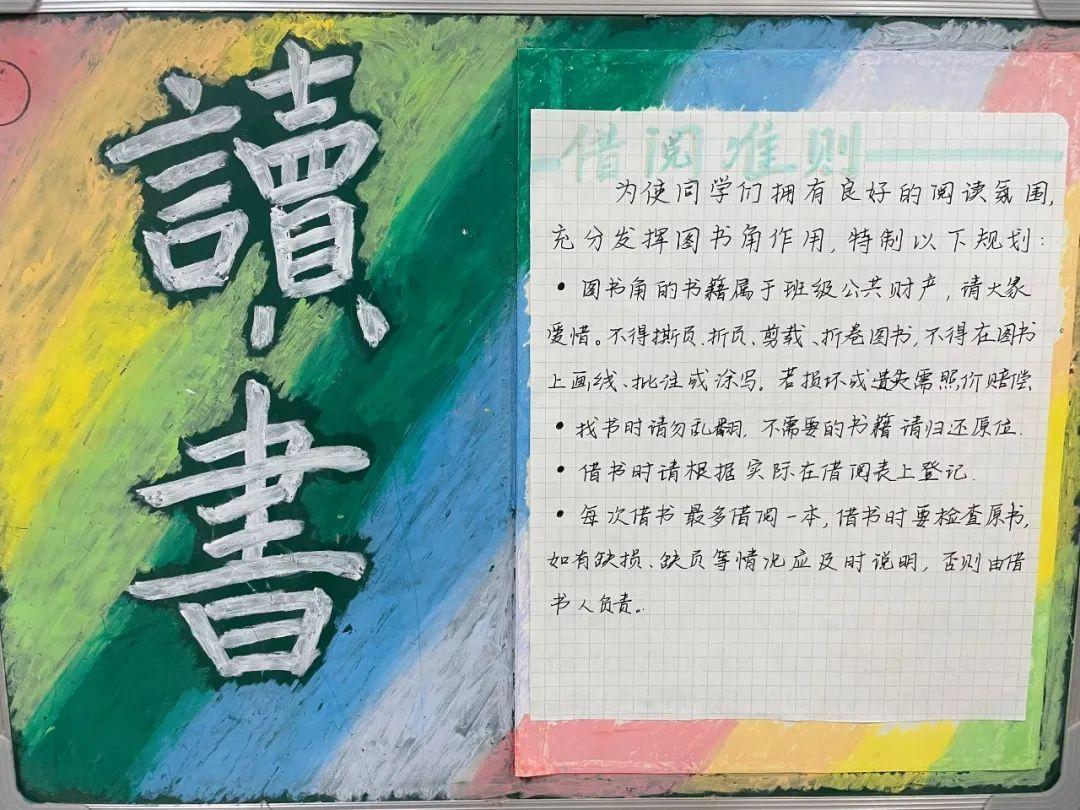 讀
書
借阅准则
为使同学们拥有良好的阅读氛围,
充分发挥图书角作用,特制以下规划:
• 图书角的书籍属于班级公共财产,请大家
爱惜。不得撕页、折页、剪裁、折卷图书,不得在图书
上画线、批注或涂写。若损坏或遗失需照价赔偿.
• 找书时请勿乱翻,不需要的书籍请归还原位.
• 借书时请根据实际在借阅表上登记.
• 每次借书最多借阅一本,借书时要检查原书,
如有缺损、缺页等情况应及时说明,否则由借
书人负责。